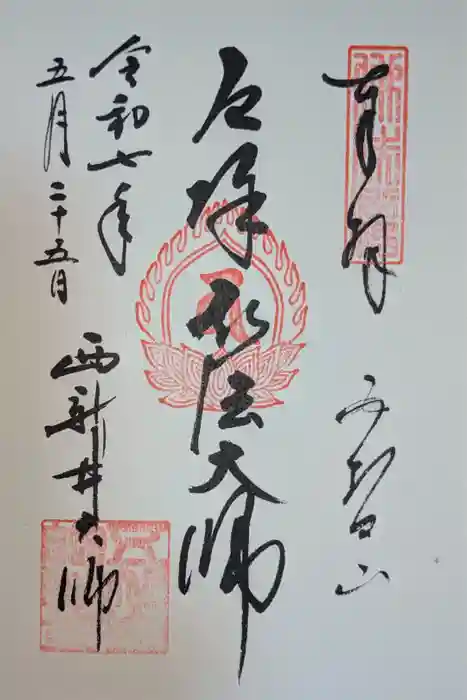 奉拝 五智山
厄除弘法大師
令和七年
五月二十五日
西新井大師